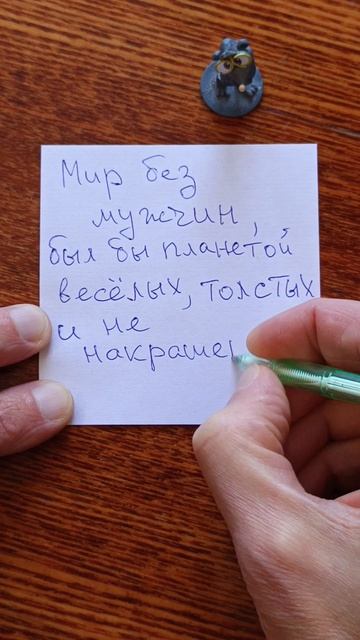 Мир без
мужчин,
был бы планетой
весёлых, толстых
и не
накраше